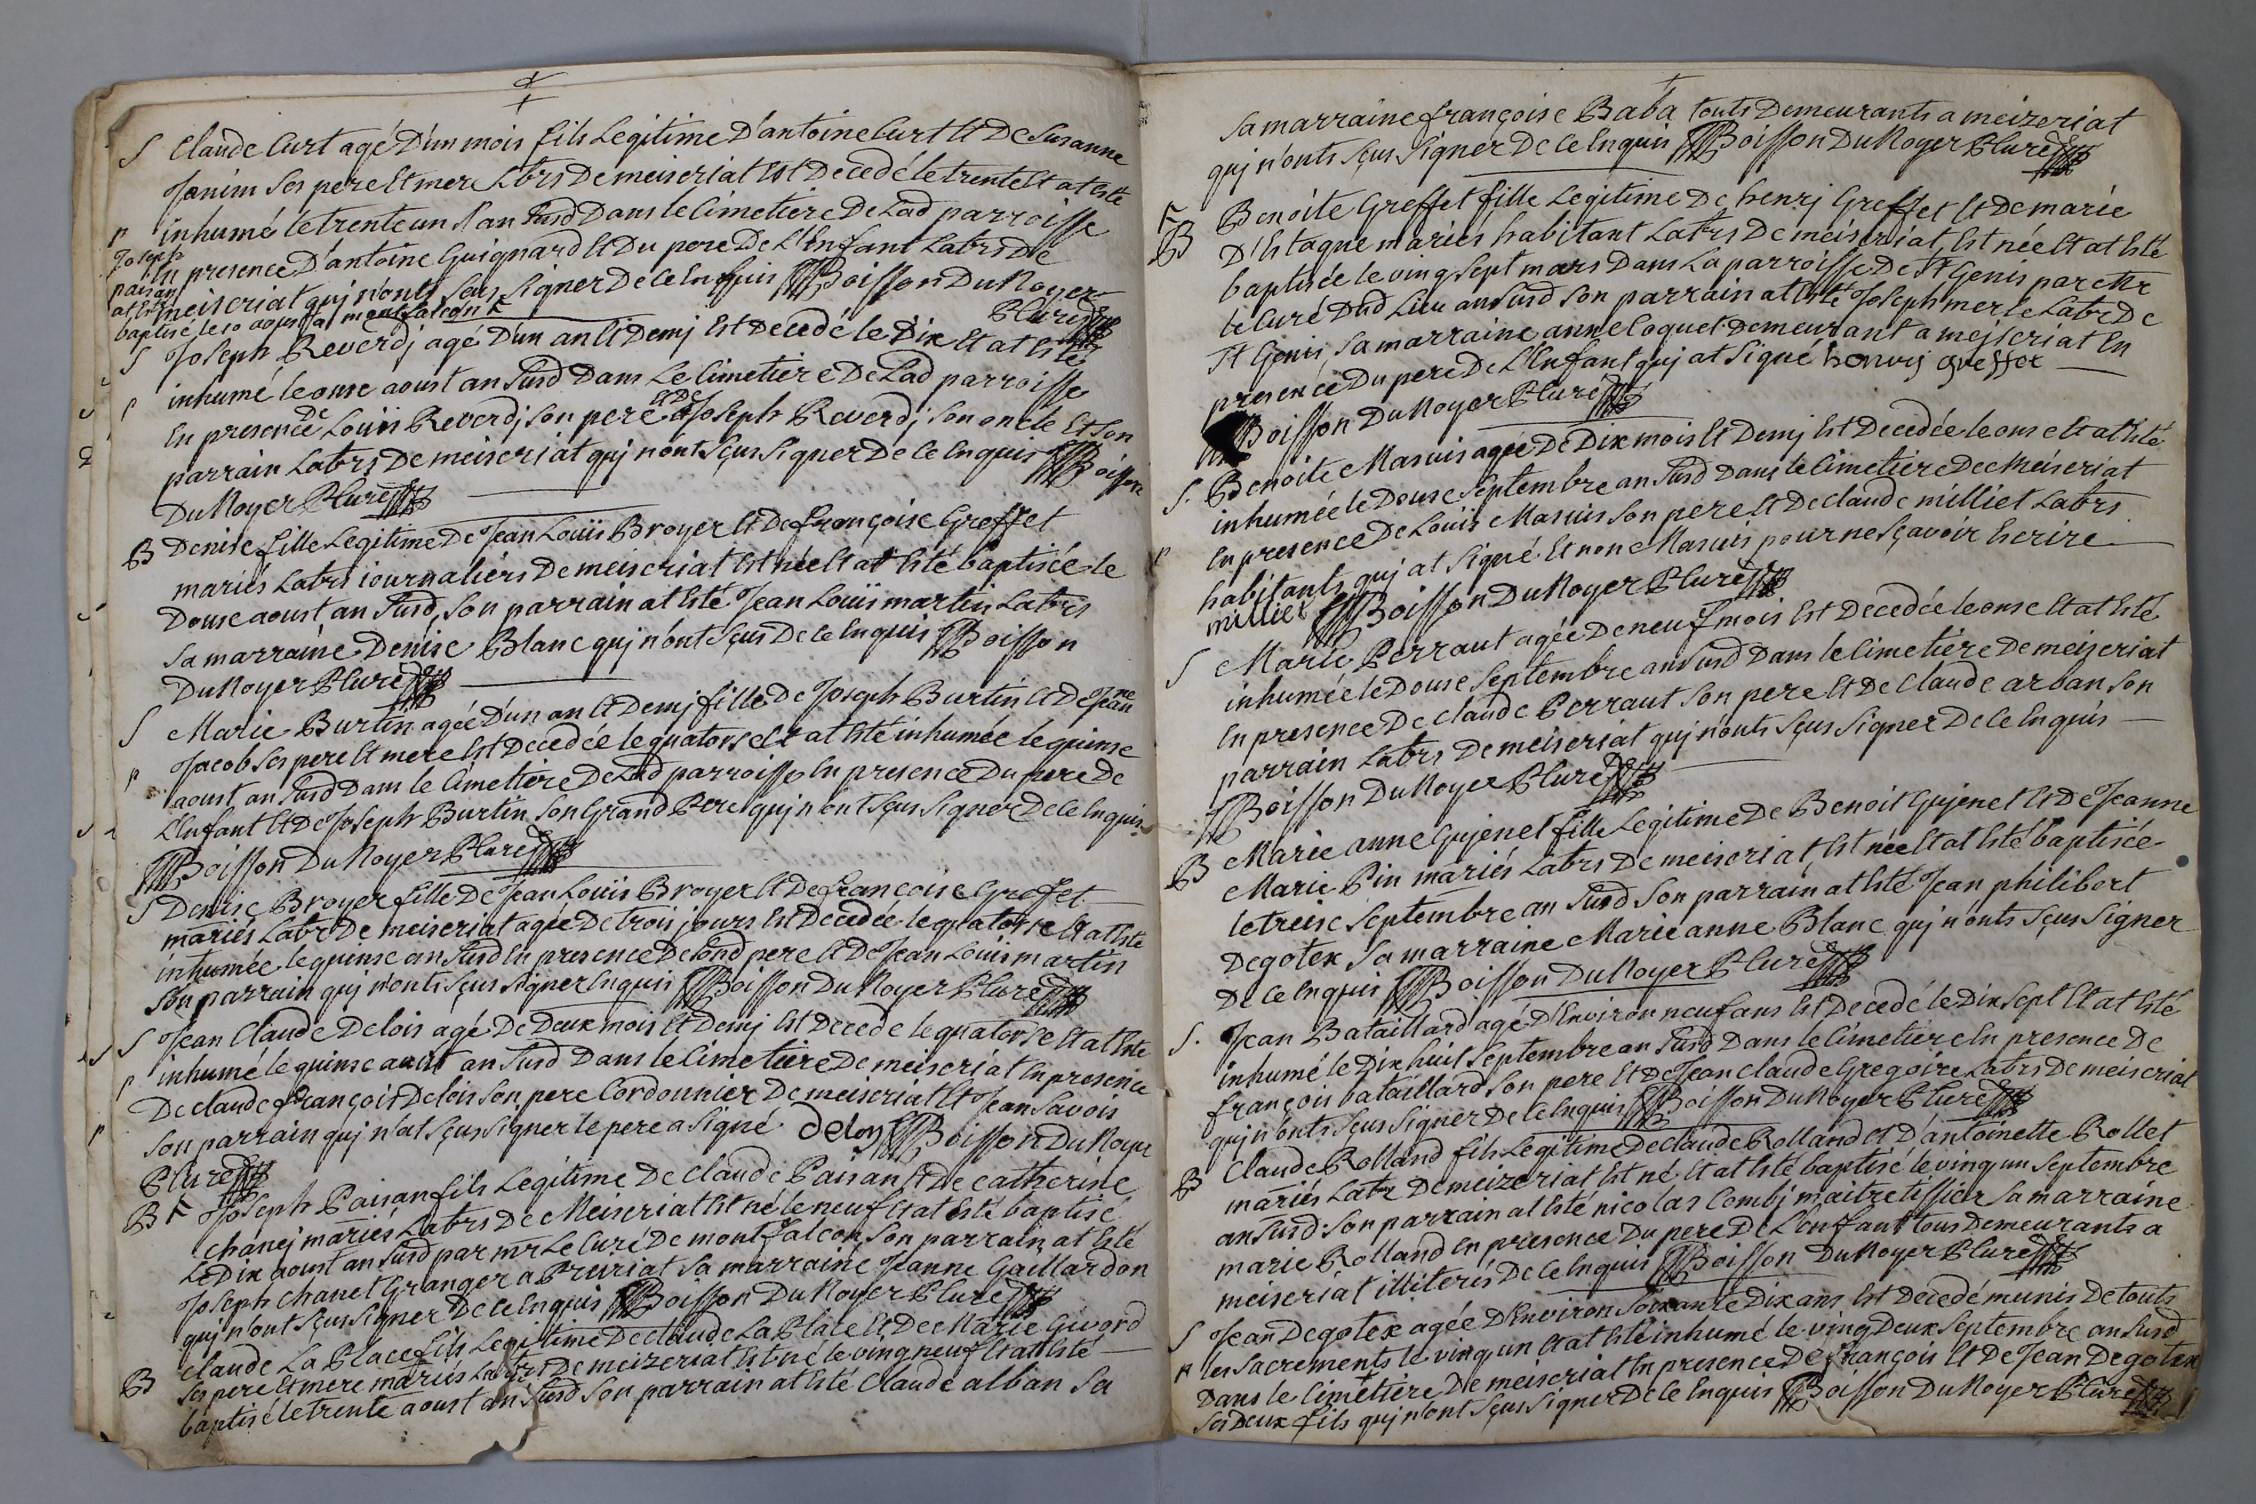 S Claude Curt agé D'un mois fils Legitime D'antoine Curt Et De Susanne
Janim ses pere Et mere Labrs De meiseriat Est Decedé le trente Et at Esté
p inhumé le trente un d'an susd Dans le Cimetiere De Lad parroisse
En presence D'antoine Guignard Et Du pere De L'Enfant Labrs De
meiseriat quj n'onts sçus signer De Ce Enquis Boisson DuNoyer
Pcuré
Joseph
paisan
at Esté
baptisé le 10 aoust a montfalcon
S Joseph Reverdj agé D'un an Et Demj Est Decedé le Dix Et at Esté
p inhumé le onse aoust an susd Dans Le Cimetiere De Lad parroisse
En presence De Louis Reverdj son pere Et De Joseph Reverdj son oncle Et son
parrain Labrs De meiseriat quj n'ont sçus signer De Ce Enquis Boisson
DuNoyer Pcuré
B Denise fille Legitime De Jean Louïs Broyer Et De françoise Greffet
mariés Labrs iournaliers De meiseriat Est née Et at Esté baptisée le
Douse aoust an susd, son parrain at Esté Jean Louïs martin Labrs
sa marraine Denise Blanc quj n'ont sçus De Ce Enquis Boisson
DuNoyer Pcuré
S Marie Burtin agée D'un an Et Demj fille De Joseph Burtin Et De Jeanne
Jacob ses pere Et mere Est Decedée le quatorse Et at Esté inhumée le quinse
p aoust an susd Dans le Cimetiere De Lad parroisse En presence Du pere De
L'Enfant Et De Joseph Burtin son Grand Pere quj n'ont sçus signer De Ce Enquis
Boisson DuNoyer Pcuré
S Denise Broyer fille De Jean Louïs Broyer Et De françoise Greffet
mariés Labrs De meiseriat agée De trois jours Est Decedée le quatorse Et at Esté
inhumée le quinse an susd En presence De sond pere Et De Jean Louïs martin
son parrain quj n'onts sçus signer Enquis Boisson DuNoyer Pcuré
S Jean Claude Delois agé De Deux mois Et Demj Est Decedé le quatorse Et at Esté
p inhumé le quinse aoust an susd Dans le Cimetiere De meiseriat En presence
De claude françois Delois son pere Cordonnier De meiseriat Et Jean Savois
son parrain quj n'at sçus signer le pere a signé deloy Boisson DuNoyer
Pcuré
B Joseph Paisan fils Legitime De Claude Paisan Et De Catherine
chanej mariés Labrs De Meiseriat Est né le neuf Et at Esté baptisé
Le Dix aoust an susd par mr Le Curé De montfalcon, son parrain at Esté
Joseph chanet Granger a Pruriat sa marraine Jeanne Gaillardon
quj n'ont sçus signer De Ce Enquis Boisson DuNoyer Pcuré
B Claude La Place fils Legitime De Claude La Place Et De Marie Givord
ses pere Et mere mariés Labrs De meizeriat Est né le vingneuf Et at Esté
baptisé le trente aoust an susd son parrain at Esté Claude alban sa
sa marraine françoise Baba touts Demeurants a meizeriat
quj n'onts sçus signer De Ce Enquis Boisson DuNoyer Pcuré
B Benoite Greffet fille Legitime De henrj Greffet Et De marie
D'Estagne mariés habitant Labrs De meiseriat, Est née Et at Esté
baptisée le vingsept mars Dans La parroisse De St Genis par mr
le Curé Dud Lieu an susd son parrain at Esté Joseph merle Labr De
St Genis, sa marraine anne Coquet Demeurant a mejseriat En
presence Du pere De L'Enfant quj at signé henrij greffet
Boisson DuNoyer Pcuré
S. Benoite Masuis agée De Dix mois Et Demj Est Decedée le onse Et at Esté
inhumée le Douse septembre an susd Dans le Cimetiere De Meiseriat
p En presence De Louïs Masuis son pere Et De claude milliet Labrs
habitants, quj at signé Et non Masuis pour ne sçavoir Ecrire
milliet Boisson DuNoyer Pcuré
S Marie Perraut agée De neuf mois Est Decedée le onse Et at Esté
inhumée le Douse septembre an susd Dans le Cimetiere De meizeriat
En presence De claude Perraut son pere Et De claude arban son
parrain Labrs De meiseriat quj n'onts sçus signer De Ce Enquis
Boisson DuNoyer Pcuré
B Marie anne Gujenet fille Legitime De Benoit Gujenet Et De Jeanne
Marie Pin mariés Labrs De meiseriat, Est née Et at Esté baptisée
le treise septembre an susd son parrain at Esté Jean philibert
Degotex sa marraine Marie anne Blanc quj n'onts sçus signer
De Ce Enquis Boisson DuNoyer Pcuré
S. Jean Bataillard agé D'Environ neuf ans Est Decedé le Dix sept Et at Esté
inhumé le Dix huit septembre an susd Dans le Cimetiere En presence De
françois bataillard son pere Et De Jean claude Gregoire Labrs De meiseriat
quj n'onts sçus signer De Ce Enquis Boisson DuNoyer Pcuré
B Claude Rolland fils Legitime De claude Rolland Et D'antoinette Rollet
mariés Labrs De meizeriat Est né Et at Esté baptisé le vingun septembre
an susd son parrain at Esté nicolas Combj maitre tissier sa marraine
marie Rolland En presence Du pere De L'enfant tous Demeurants a
meiseriat illiterés De Ce Enquis Boisson DuNoyer Pcuré
S Jean Degotex agée D'Environ soixante Dix ans Est Decedé munis De touts
p les sacrements le vingun Et at Esté inhumé le vingDeux septembre an susd
Dans le Cimetiere De meiseriat En presence De françois Et De Jean Degotex
ses Deux fils quj n'ont sçus signer De Ce Enquis Boisson DuNoyer Pcuré